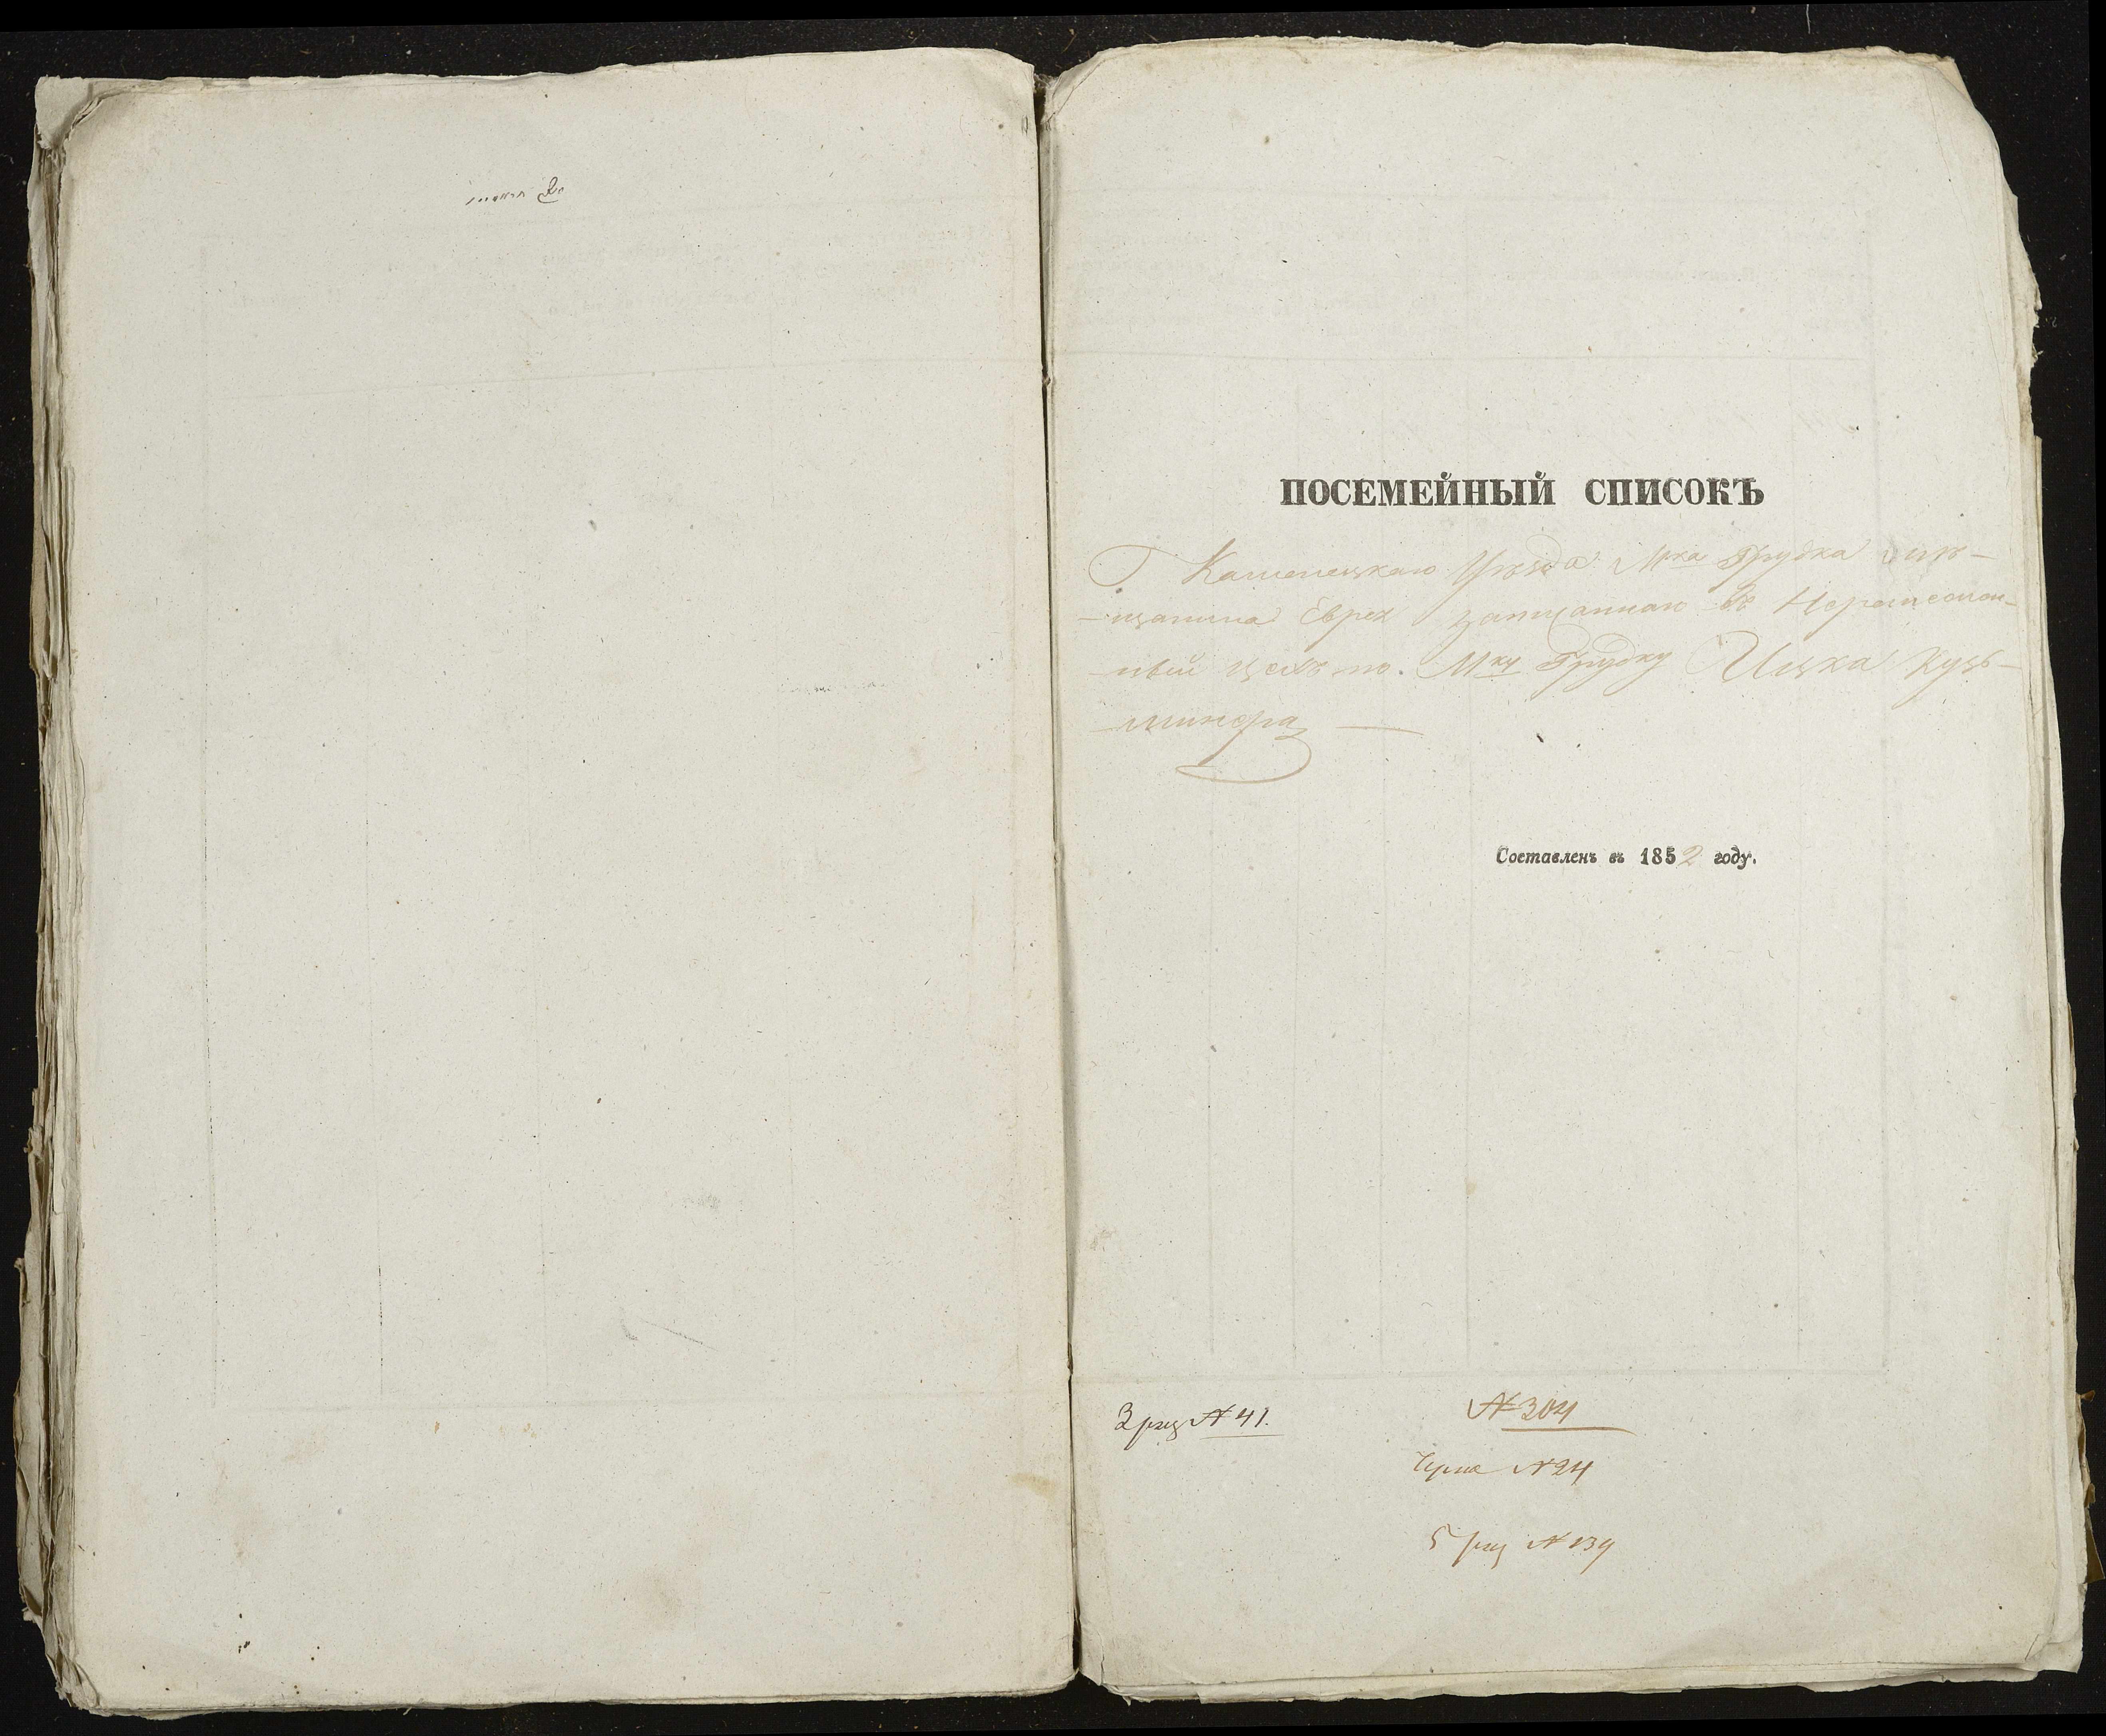 ПОСЕМЕЙНЫЙ СПИСОКЪ
Каменецкаго Уѣзда Мка Грудка мѣ-
щанина Еврея записаннаго въ Неремеслен-
ный цехъ по Мку Грудку Ицка Кузь-
минера
Составленъ въ 1852 году.
3 рзц № 41.
№ 304
№ 24
5 рзц № 139